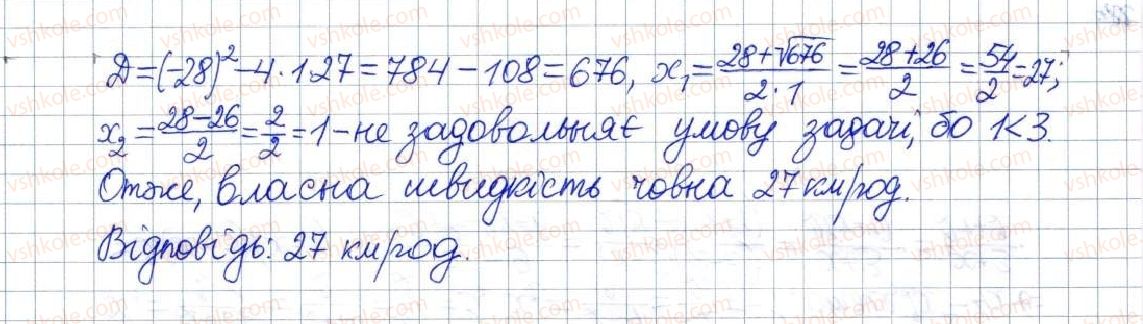 D = (-28)² - 4 · 1 · 27 = 784 - 108 = 676, x₁ = (28+√676)/(2·1) = (28+26)/2 = 54/2 = 27;
x₂ = (28-26)/2 = 2/2 = 1 - не задовольняє умову задачі, бо 1<3.
Отже, власна швидкість човна 27 км/год.
Відповідь: 27 км/год.